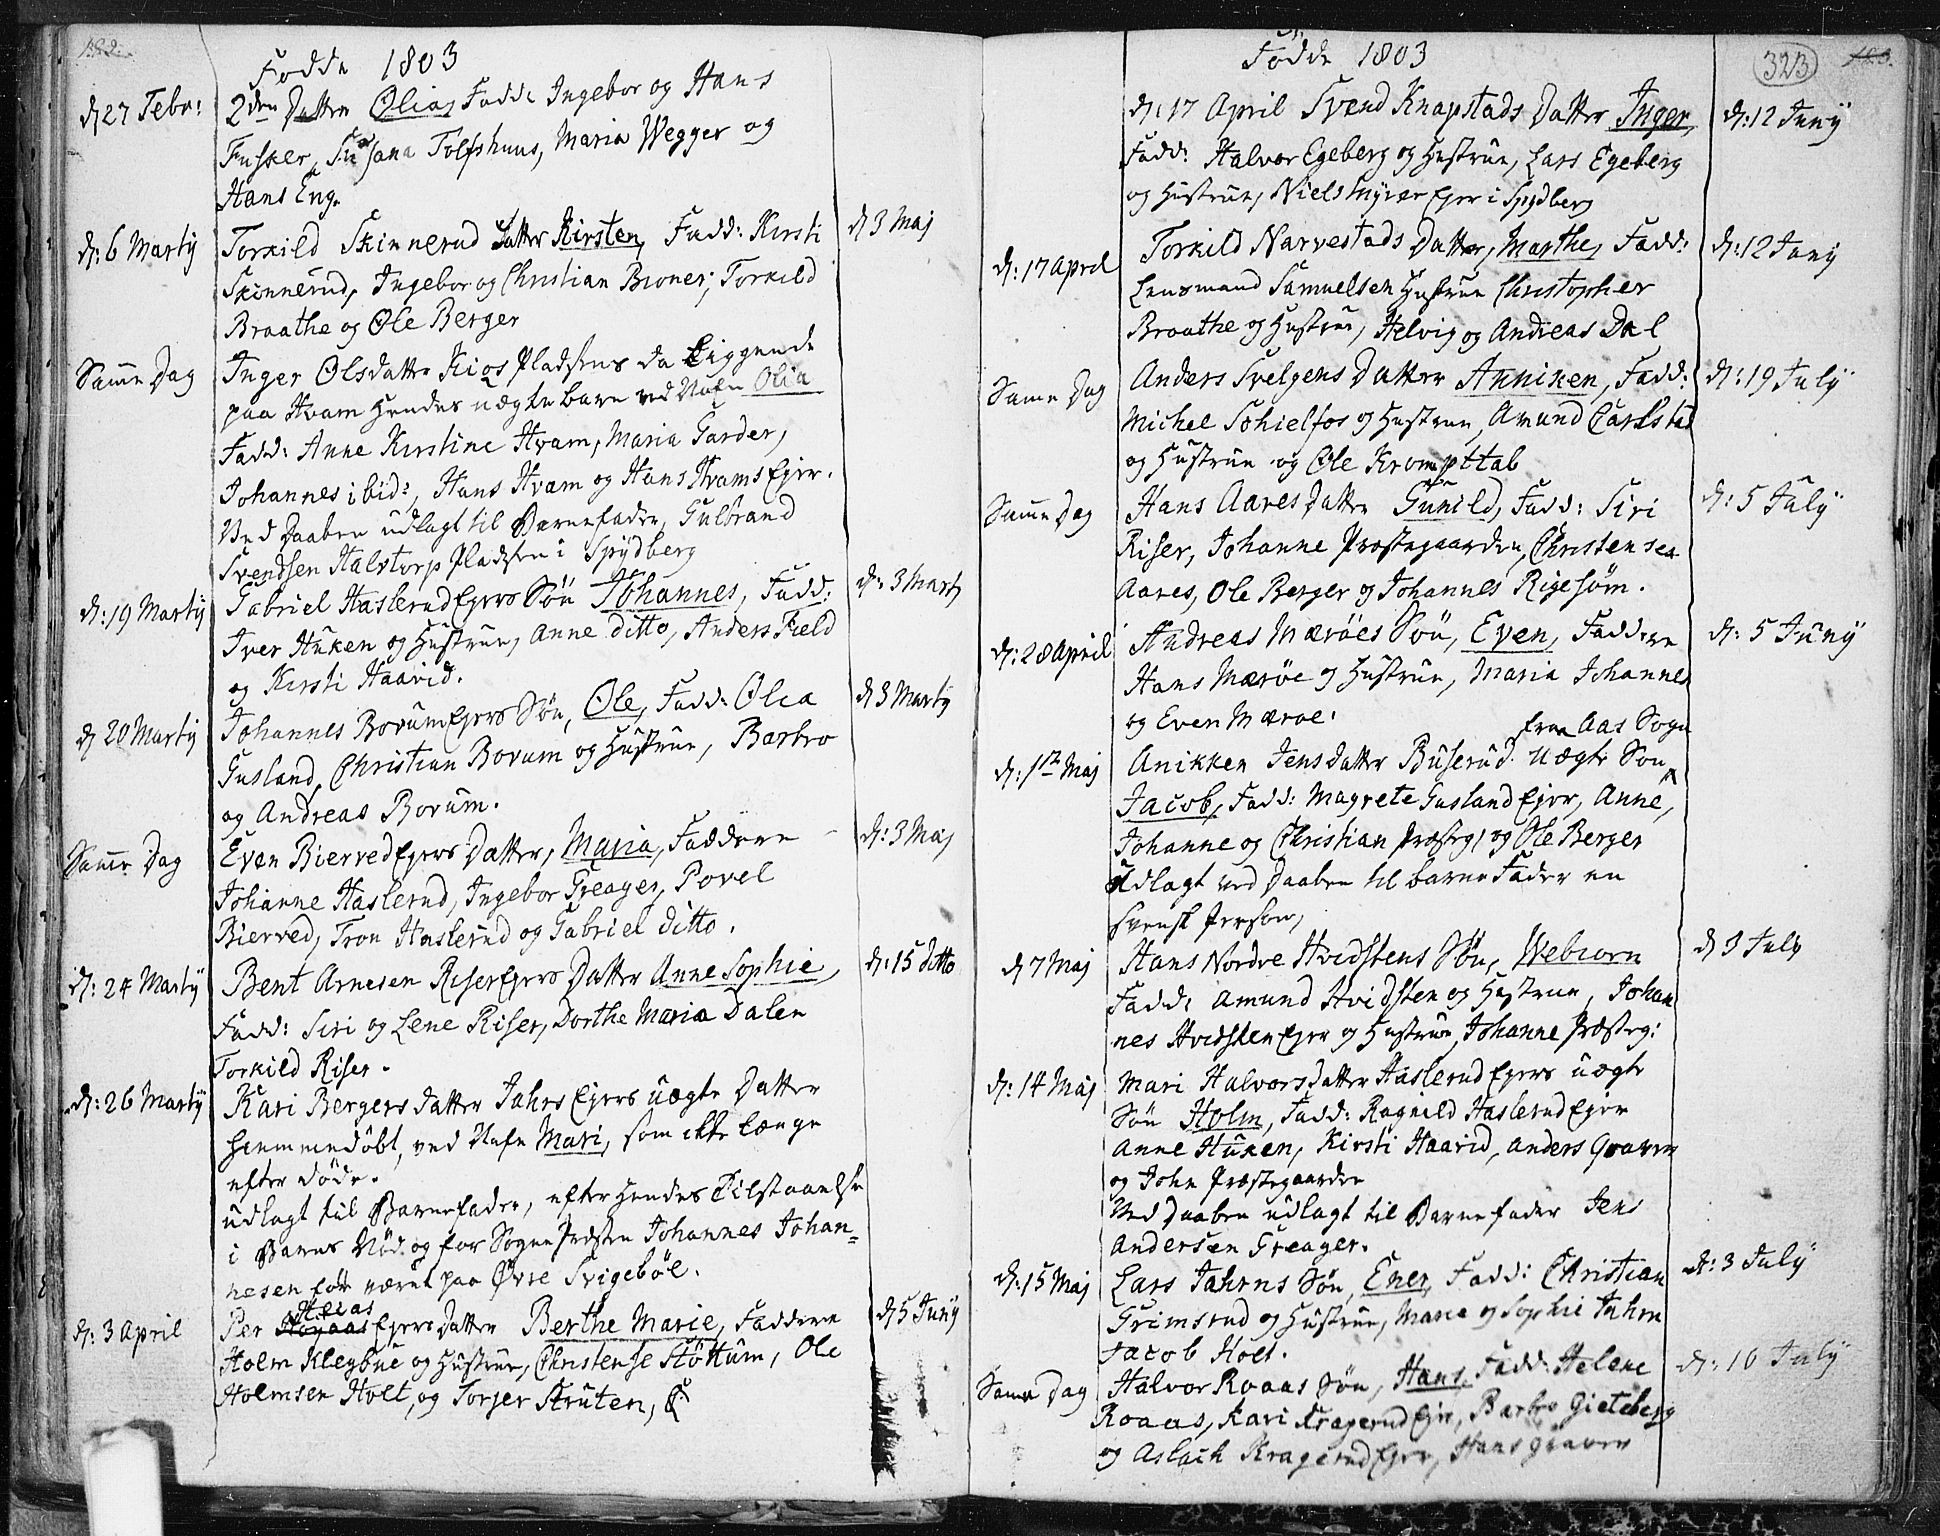 182.
Fødde 1803
d 27 Febr: 2den Datter Olia, Fadd: Ingebor og Hans
Fusker, Susana Tolfshuus, Maria Wegger og
Hans Eng.
d: 6 Martij Torkild Skinnerud Datter Kirsten, Fadd: Kirsti d 3 Maj
Skinnerud, Ingebor og Christian Bioner, Torkild
Braathe og Ole Berger
Samme Dag Inger Olsdatter Kios Pladsens da Liggende
paa Hvam Hendes uægte barn ved Nafn Olia
Fadd: Anne Kirstine Hvam, Maria Garder,
Johannes ibid:, Hans Hvam og Hans Hvams Ejer.
Ved Daaben udlagt til Barnefader, Gulbrand
Svendsen Halstorp Pladsen i Spydberg
d: 19 Martij Gabriel Haslerud Ejers Søn Johannes, Fadd: d: 3 Martij
Iver Huken og Hustrue, Anne ditto, Anders Field
og Kirsti Haavid.
d 20 Martij Johannes Borum Ejers Søn, Ole, Fadd: Olea d 3 Martij
Gusland, Christian Borum og Hustrue, Barbro
og Andreas Borum.
Samme Dag Even Bierred Ejers Datter, Maria, Faddere d: 3 Maj
Johanne Haslerud, Ingebor Greager, Povel
Bierved, Tron Haslerud og Gabriel ditto.
d: 24 Martij Bent Arnesen Riser Ejers Datter Anne Sophie, d: 15 ditto
Fadd: Siri og Lene Riser, Dorthe Maria Dalen
Torkild Riser.
d: 26 Martij Kari Bergers datter Jahrs Ejers uægte Datter
hiemmedøbt, ved Nafn Mari, som ikke længe
efter døde.
udlagt til Barnefader, efter Hendes Tilstaaelse
i Barns Nød og for Sogne Præsten Johannes Johan=
nesen før været paa Øvre Svigebøl.
d: 3 April Per Heiaas Ejers Datter Berthe Marie, Faddere d 5 Junij
Holm Klegbue og Hustrue, Christense Støttum, Ole
Holmsen Holt, og Torger Struten,
323
183.
Fødde 1803
d: 17 April Svend Knapstads Datter Inger, d: 12 Junij
Fadd: Halvor Egeberg og Hustrue, Lars Egeberg
og Hustrue, Niels Myrer Ejer i Spydberg
d: 17 April Torkild Narvestads Datter, Marthe, Fadd: d: 12 Junij
Lensmand Samuelsen Hustrue Christopher
Braathe og Hustrue, Helvig og Andreas Dal
Samme Dag Anders Svelgens Datter Anniken, Fadd: d: 19 July
Michel Schielfos og Hustrue, Amund Carlstad
og Hustrue og Ole Krompttab
Samme Dag Hans Aares Datter Gunild, Fadd: Siri d: 5 July
Riser, Johanne Præstegaarden, Christensea
Aares, Ole Berger og Johannes Rigesøm.
d: 28 April Andreas Mærøes Søn, Even, Faddere d: 5 Junij
Hans Mærøe og Hustrue, Maria Johannes
og Even Mæroe.
fra Aas Sogn
d: 1ste Maj Anikken Jensdatter Buserud uægte Søn
Jacob, Fadd: Magrete Gusland Ejer, Anne,
Johanne og Christian Præsteg: og Ole Berger
Udlagt ved Daaben til barne Fader en
svensk Person,
d 7 Maj Hans Nordre Hvidstens Søn, Webiorn d 3 July
Fadd: Amund Hvidsten og Hustrue, Johan
nes Hvidsten Ejer og Hustrue, Johanne Præsteg:
d: 14 Maj Mari Halvorsdatter Haslerud Ejers uægte
Søn Holm, Fadd: Ragnild Haslerud Ejer
Anne Huken, Kirsti Haavid, Anders Graven
og John Præstegaarden
Ved Daaben udlagt til Barnefader Jens
Andersen Greager.
d: 15 Maj Lars Jahrns Søn, Ener, Fadd: Christian d: 3 July
Grimsrud og Hustrue, Maria og Sophie Jahrn
Jacob Hoel.
Samme Dag Halvor Roaas Søn, Hans, Fadd: Helene d: 10 July
Roaas, Kari Kragerud Ejer, Barbro Gieteberg
og Aslach Kragerud Ejer, Hans Graven